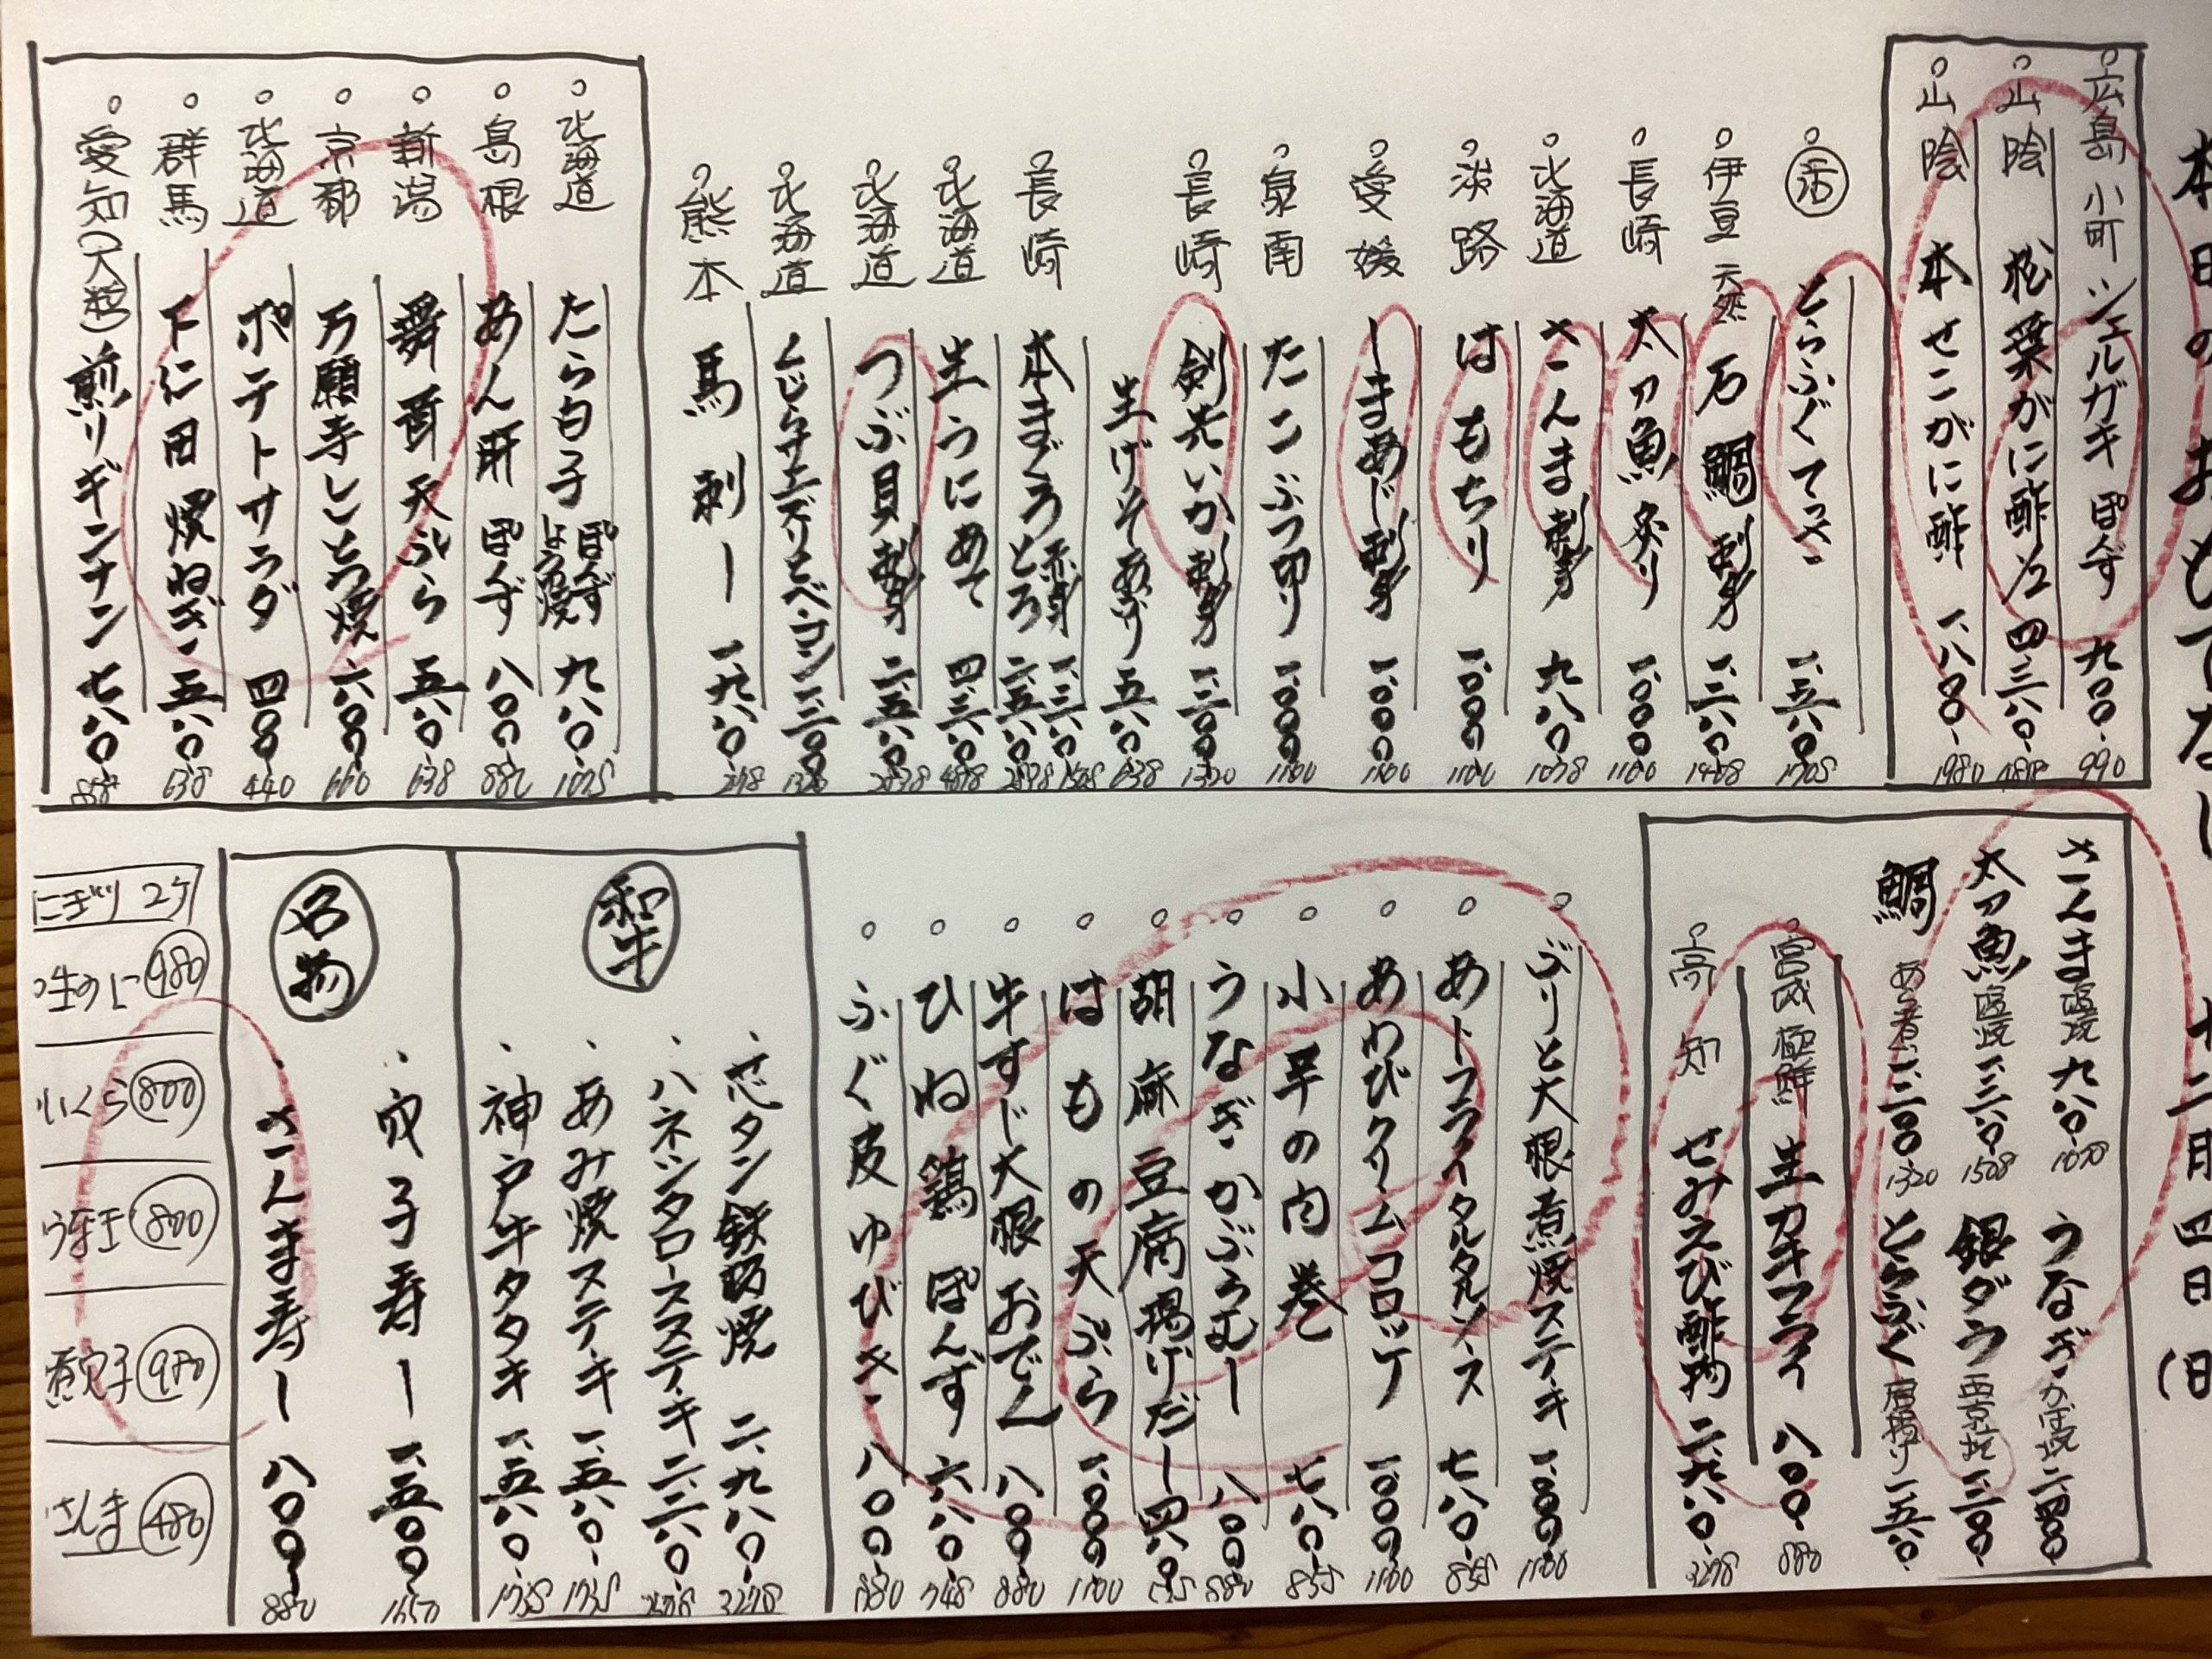 本日のおもてなし 十二月四日(日
広島 小町 シェルガキ ぽんず 九〇〇 990
山陰 松葉がに酢 1/2 四三八〇
山陰 本せこがに酢 一、八〇〇 1980
活 とらふぐてっさ 一、五八〇
伊豆 天然 石鯛 刺身 一、二八〇 1408
長崎 太刀魚炙り 一、〇〇〇 1100
北海道 さんま刺身 九八〇 1078
淡路 はもちり 一、〇〇〇 1100
愛媛 しまあじ刺身 一、〇〇〇 1100
泉南 たこぶつ切り 一、〇〇〇 1100
長崎 剣先いか刺身 一、二〇〇 1320
生げそあぶり 五八〇 638
長崎 本まぐろ 赤身 一、三八〇
とろ 二、五八〇
北海道 生うにあて 四、三八〇
北海道 つぶ貝刺身 二、五八〇 2838
北海道 くじらサエズリとベーコン 一、二〇〇 1320
熊本 馬刺し 一、九八〇
北海道 たら白子 ぽんず 九八〇
島根 あん肝 ぽんず 八〇〇
新潟 舞茸天ぷら 五八〇 638
京都 万願寺しとう焼 六〇〇 660
北海道 ポテトサラダ 四〇〇 440
群馬 下仁田焼ねぎ 五八〇 638
愛知(大粒) 煎りギンナン 七八〇 858
さんま塩焼 九八〇 1078
うなぎ かば焼 二、四〇〇
太刀魚塩焼 一、三八〇 1508
銀ダラ 西京焼
鯛 あら煮 一、二〇〇 1320
とらふぐ 唐揚げ 一、五八〇
宮城 極鮮 生カキフライ 八〇〇 880
高知 せみえび酢物 二、九八〇 3278
ぶりと大根煮焼ステーキ 一、〇〇〇 1100
あトフライタルタルソース 七八〇 858
あわびクリームコロッケ 一、〇〇〇 1100
小芋の肉巻 七八〇 858
うなぎかぶらむし 八〇〇 880
胡麻豆腐揚げだし
はもの天ぷら 一、〇〇〇 1100
牛すじ大根おでん 八〇〇 880
ひね鶏ぽんず 六八〇 748
ふぐ皮ゆびき 八〇〇 880
和牛
芯タン鉄板焼 二、九八〇 3278
ハネシタロースステーキ
あみ焼ステーキ 一、五八〇
神戸牛タタキ 一、五八〇
名物
穴子寿し 一、五〇〇 1650
さんま寿し 八〇〇 880
にぎり 2ケ
生うに 980
いくら 800
煮穴子 980
さんま 480